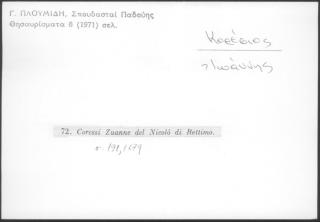 Γ. ΠΛΟΥΜΙΔΗ, Σπουδασταί Παδούης
Θησαυρίσματα 8 (1971) σελ.
Κορέσιος
Ἰωάννης
72. Coressi Zuanne del Nicolò di Rettimo.
σ. 191, 1679